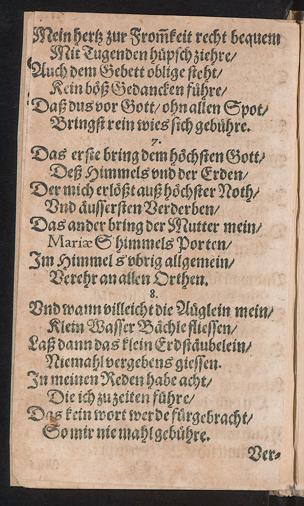 Mein hertz zur From̃keit recht bequem
Mit Tugenden hüpsch ziehre/
Auch dem Gebett oblige steht/
Kein böß Gedancken führe/
Daß dus vor Gott/ ohn allen Spot/
Bringst rein wies sich gebühre.
7.
Das erste bring dem höchsten Gott/
Deß Himmels vnd der Erden/
Der mich erlößt auß höchster Noth/
Vnd äussersten Verderben/
Das ander bring der Mutter mein/
Mariæ S himmels Porten/
Im Himmel s vbrig allgemein/
Verehr an allen Orthen.
8.
Vnd wann villeicht die Aüglein mein/
Klein Wasser Bächle fliessen/
Laß dann das klein Erdstäubelein/
Niemahl vergebens giessen.
In meinen Reden habe acht/
Die ich zu zeiten führe/
Das kein wort werde fürgebracht/
So mir niemahl gebühre.
Ver-